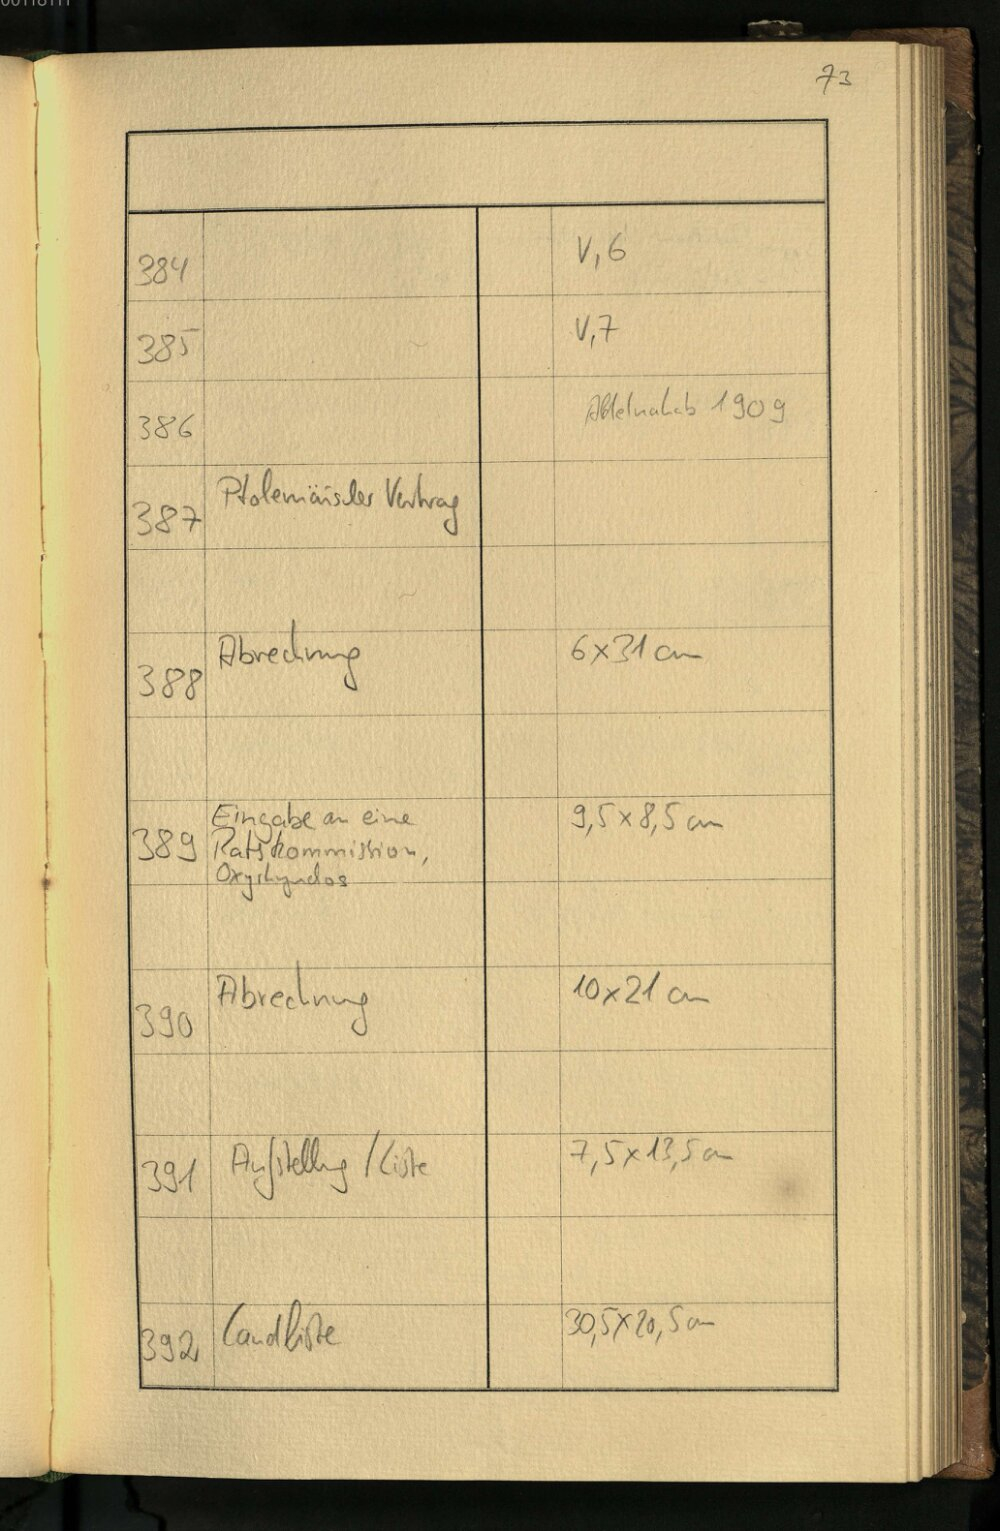 73
384 V,6
385 V,7
386 1909
387 Ptolemäischer Vertrag
388 Abrechnung 6x31 cm
389 Eingabe an eine 9,5x8,5 cm
Ratskommission,
Oxyrhynchos
390 Abrechnung 10x21 cm
391 Aufstellung / Liste 7,5x13,5 cm
392 Landliste 30,5x20,5 cm